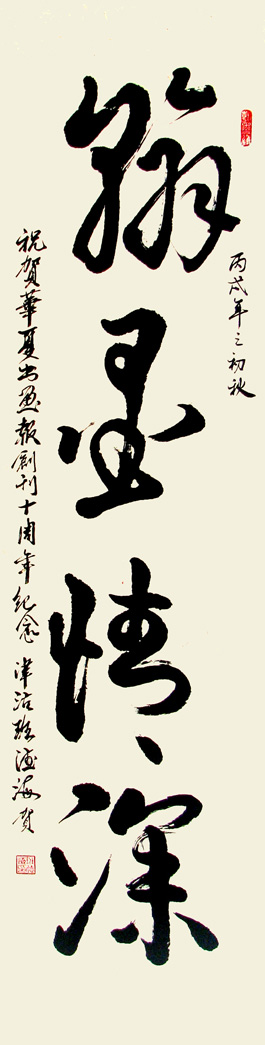 丙戌年之初秋
翰墨情深
祝賀華夏书画報創刊十周年纪念 津沽德海贺